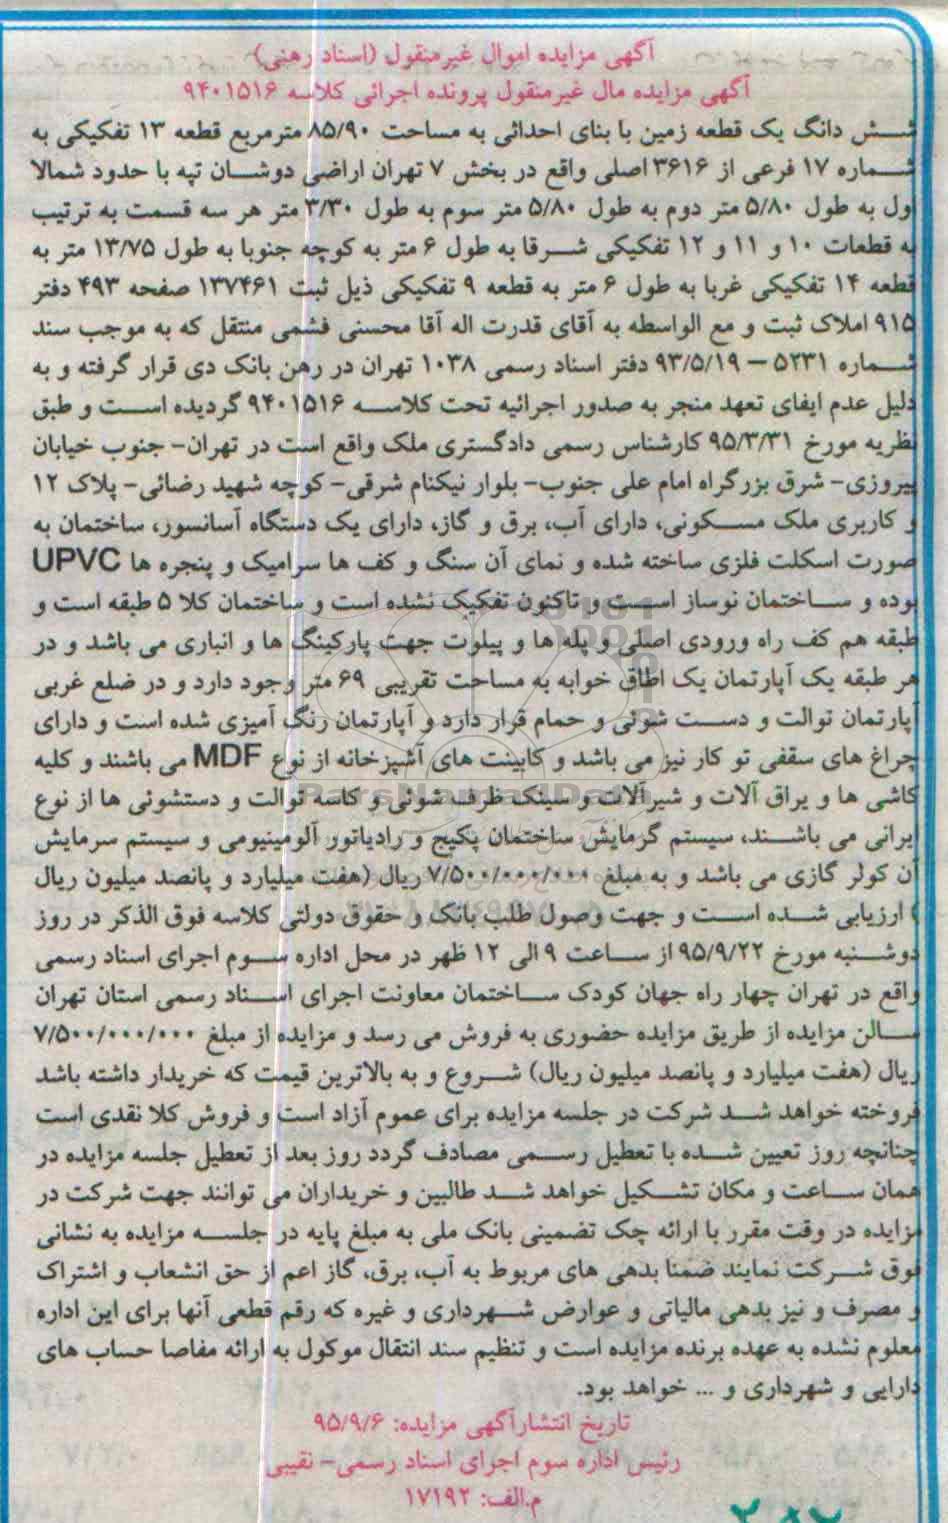 آگهی مزایده اموال غیرمنقول (اسناد رهنی)
آگهی مزایده مال غیرمنقول پرونده اجرائی کلاسه ۹۴۰۱۵۱۶
شش دانگ یک قطعه زمین با بنای احداثی به مساحت ۸۵/۹۰ مترمربع قطعه ۱۳ تفکیکی به
شماره ۱۷ فرعی از ۳۶۱۶ اصلی واقع در بخش ۷ تهران اراضی دوشان تپه با حدود شمالا
اول به طول ۵/۸۰ متر دوم به طول ۵/۸۰ متر سوم به طول ۳/۳۰ متر هر سه قسمت به ترتیب
به قطعات ۱۰ و ۱۱ و ۱۲ تفکیکی شرقا به طول ۶ متر به کوچه جنوبا به طول ۱۳/۷۵ متر به
قطعه ۱۴ تفکیکی غربا به طول ۶ متر به قطعه ۹ تفکیکی ذیل ثبت ۱۳۷۴۶۱ صفحه ۴۹۳ دفتر
۹۱۵ املاک ثبت و مع الواسطه به آقای قدرت اله آقا محسنی فشمی منتقل که به موجب سند
شماره ۵۲۳۱ – ۹۳/۵/۱۹ دفتر اسناد رسمی ۱۰۳۸ تهران در رهن بانک دی قرار گرفته و به
دلیل عدم ایفای تعهد منجر به صدور اجرائیه تحت کلاسه ۹۴۰۱۵۱۶ گردیده است و طبق
نظریه مورخ ۹۵/۳/۳۱ کارشناس رسمی دادگستری ملک واقع است در تهران- جنوب خیابان
پیروزی- شرق بزرگراه امام علی جنوب- بلوار نیکنام شرقی- کوچه شهید رضائی- پلاک ۱۲
و کاربری ملک مسکونی، دارای آب، برق و گاز، دارای یک دستگاه آسانسور، ساختمان به
صورت اسکلت فلزی ساخته شده و نمای آن سنگ و کف ها سرامیک و پنجره ها UPVC
بوده و ساختمان نوساز است و تاکنون تفکیک نشده است و ساختمان کلا ۵ طبقه است و
طبقه هم کف راه ورودی اصلی و پله ها و پیلوت جهت پارکینگ ها و انباری می باشد و در
هر طبقه یک آپارتمان یک اطاق خوابه به مساحت تقریبی ۶۹ متر وجود دارد و در ضلع غربی
آپارتمان توالت و دست شوئی و حمام قرار دارد و آپارتمان رنگ آمیزی شده است و دارای
چراغ های سقفی تو کار نیز می باشد و کابینت های آشپزخانه از نوع MDF می باشند و کلیه
کاشی ها و یراق آلات و شیرآلات و سینک ظرف شوئی و کاسه توالت و دستشوئی ها از نوع
ایرانی می باشند، سیستم گرمایش ساختمان پکیج و رادیاتور آلومینیومی و سیستم سرمایش
آن کولر گازی می باشد و به مبلغ ۷/۵۰۰/۰۰۰/۰۰۰ ریال (هفت میلیارد و پانصد میلیون ریال
) ارزیابی شده است و جهت وصول طلب بانک و حقوق دولتی کلاسه فوق الذکر در روز
دوشنبه مورخ ۹۵/۹/۲۲ از ساعت ۹ الی ۱۲ ظهر در محل اداره سوم اجرای اسناد رسمی
واقع در تهران چهار راه جهان کودک ساختمان معاونت اجرای اسناد رسمی استان تهران
سالن مزایده از طریق مزایده حضوری به فروش می رسد و مزایده از مبلغ ۷/۵۰۰/۰۰۰/۰۰۰
ریال (هفت میلیارد و پانصد میلیون ریال) شروع و به بالاترین قیمت که خریدار داشته باشد
فروخته خواهد شد شرکت در جلسه مزایده برای عموم آزاد است و فروش کلا نقدی است
چنانچه روز تعیین شده با تعطیل رسمی مصادف گردد روز بعد از تعطیل جلسه مزایده در
همان ساعت و مکان تشکیل خواهد شد طالبین و خریداران می توانند جهت شرکت در
مزایده در وقت مقرر با ارائه چک تضمینی بانک ملی به مبلغ پایه در جلسه مزایده به نشانی
فوق شرکت نمایند ضمنا بدهی های مربوط به آب، برق، گاز اعم از حق انشعاب و اشتراک
و مصرف و نیز بدهی مالیاتی و عوارض شهرداری و غیره که رقم قطعی آنها برای این اداره
معلوم نشده به عهده برنده مزایده است و تنظیم سند انتقال موکول به ارائه مفاصا حساب های
دارایی و شهرداری و ... خواهد بود.
تاریخ انتشارآگهی مزایده: ۹۵/۹/۶
رئیس اداره سوم اجرای اسناد رسمی- نقیبی
م.الف: ۱۷۱۹۲